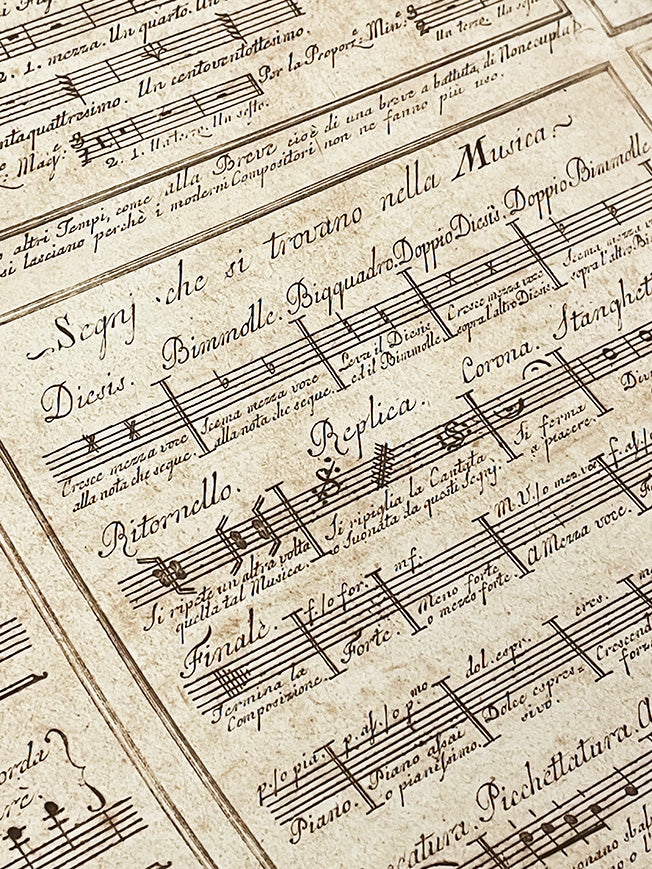 2. 1. mezza. Un quarto. Un
Un centoventottesimo.
Per la Propor.e Min.e
Un terzo. Un
Mag.e
2. 1. Un terzo. Un sesto.
altri Tempi, come alla Breve cioè di una breve a battuta, di Nonecupla
si lasciano perchè i moderni Compositori non ne fanno più uso.
Segnj che si trovano nella Musica
Diesis. Bimmolle. Biqquadro. Doppio Diesis. Doppio Bimmolle
Cresce mezza voce
alla nota che segue.
Scema mezza voce
alla nota che segue.
Leva il Diesis
ed il Bimmolle
Cresce mezza voce
sopra l'altro Diesis.
Scema mezza voce
sopra l'altro
Ritornello. Replica. Corona.
Si ripete un altra volta
quella tal Musica.
Si ripiglia la Cantata
o Suonata da questi Segnj.
Si ferma
a piacere.
Finale. f. / o for. mf. M.V. / o mez. vo:
Termina la
Composizione.
Forte.
Meno forte
o mezzo forte.
A Mezza voce.
p. / o pia. p. as. / o p.mo dol. espr. cres.
Piano.
Piano assai
o pianissimo.
Dolce espres=
sivo.
Picchettatura.